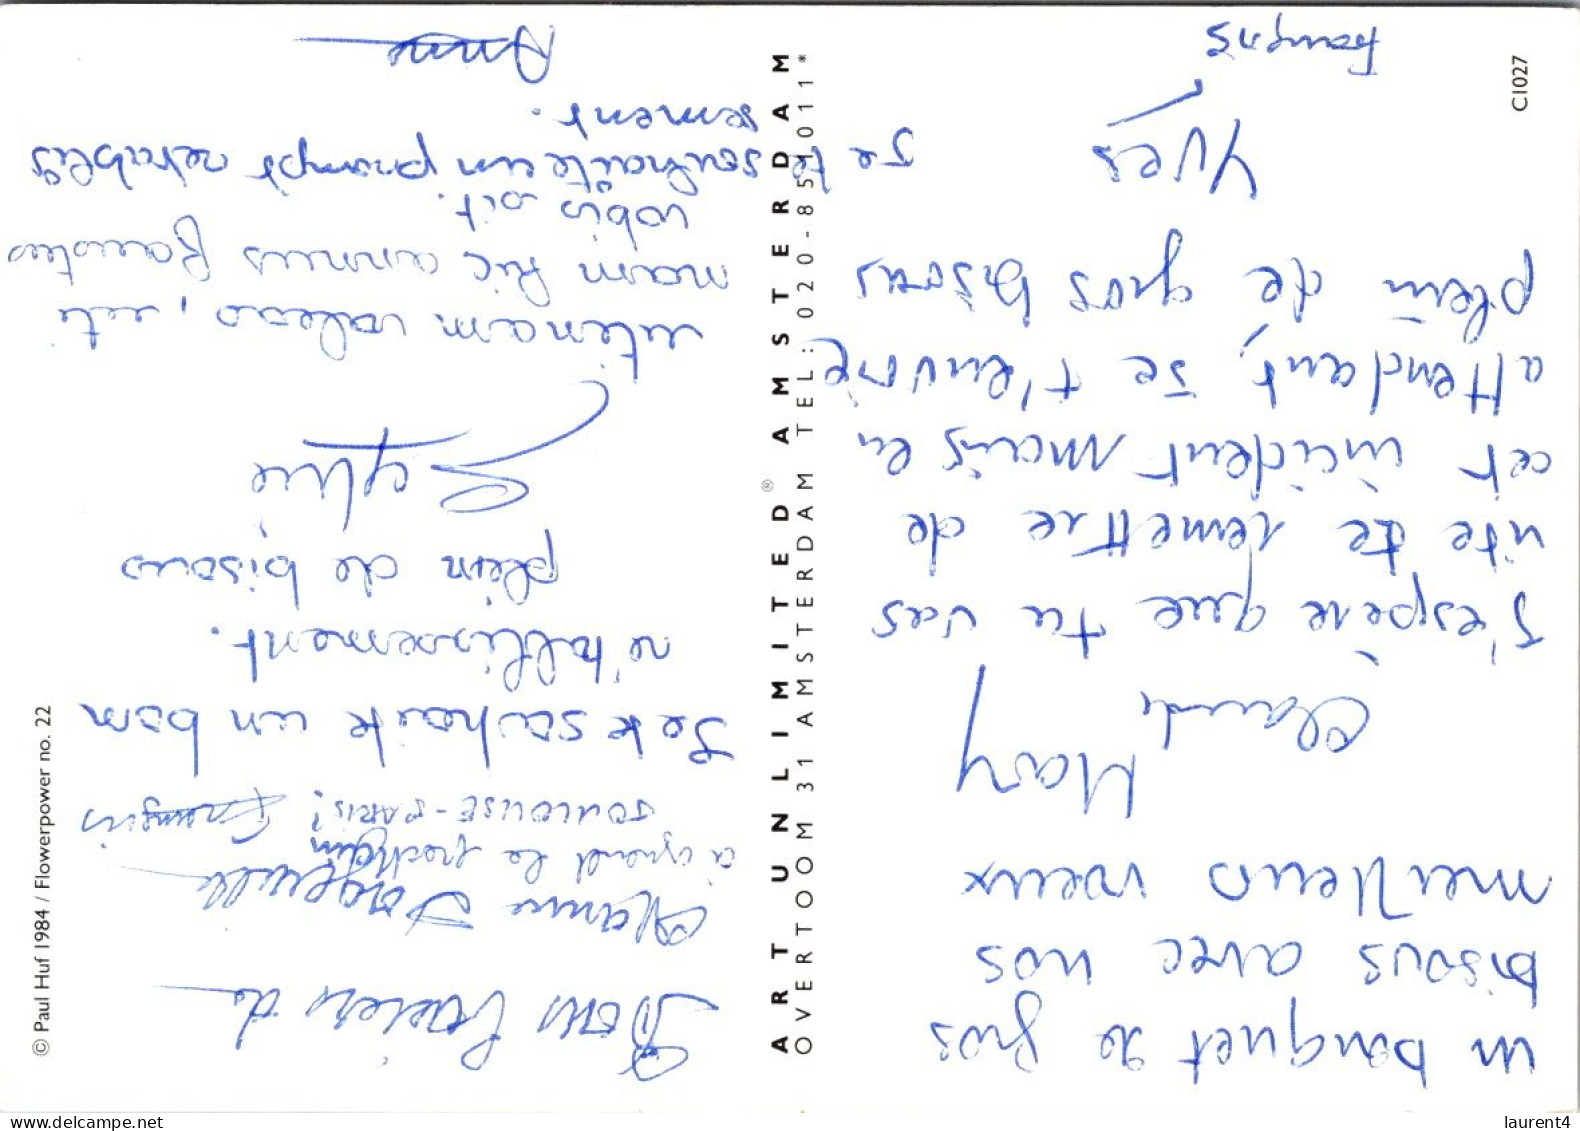 un bouquet de gros
bisous avec nos
meilleurs voeux
Mary
Claude
J'espère que tu vas
vite te remettre de
cet incident mais en
attendant, je t'envoie
plein de gros bisous
Yves
François
Bons baisers de
à quand le prochain
TOULOUSE-PARIS? François
Je te souhaite un bon
rétablissement.
plein de bisous
Sophie
utinam valeas, uti
nam hic annus faustus
vobis sit.
Je te souhaite un prompt rétablis
sement.
Anne
ART UNLIMITED® AMSTERDAM
OVERTOOM 31 AMSTERDAM TEL: 020-851011*
© Paul Huf 1984 / Flowerpower no. 22
C1027
laurent4